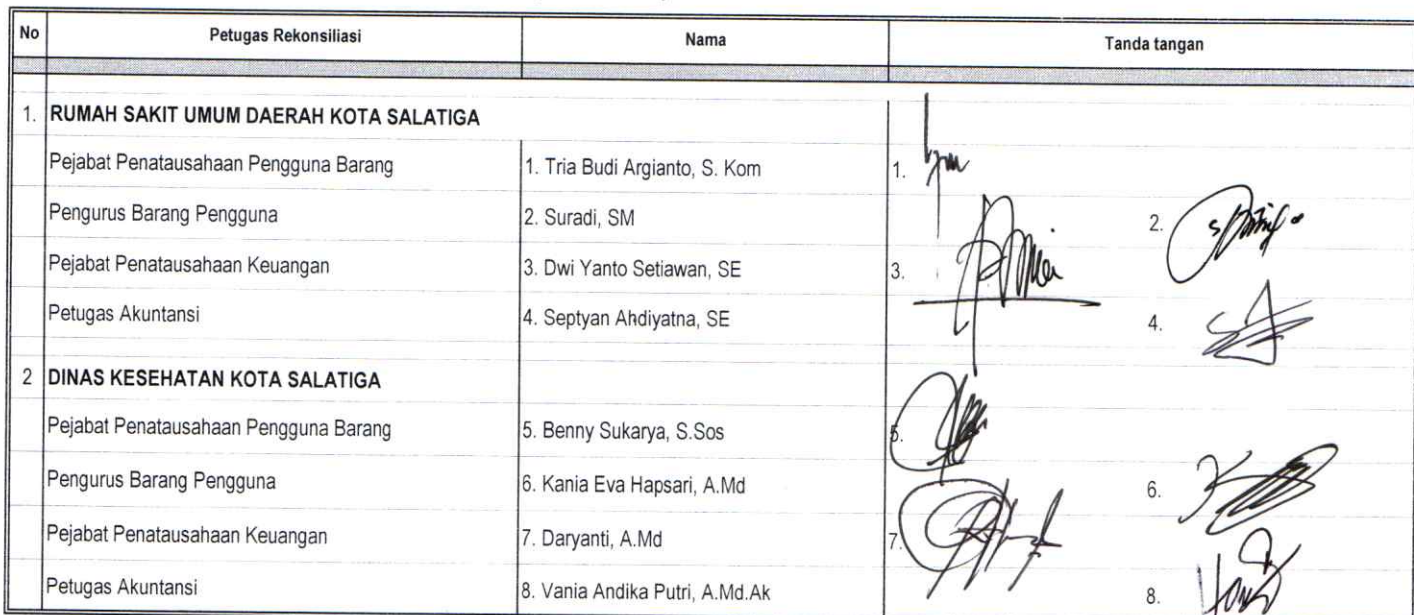 No Petugas Rekonsiliasi Nama Tanda tangan
1. RUMAH SAKIT UMUM DAERAH KOTA SALATIGA
Pejabat Penatausahaan Pengguna Barang 1. Tria Budi Argianto, S. Kom 1.
Pengurus Barang Pengguna 2. Suradi, SM 2.
Pejabat Penatausahaan Keuangan 3. Dwi Yanto Setiawan, SE 3.
Petugas Akuntansi 4. Septyan Ahdiyatna, SE 4.
2 DINAS KESEHATAN KOTA SALATIGA
Pejabat Penatausahaan Pengguna Barang 5. Benny Sukarya, S.Sos 5.
Pengurus Barang Pengguna 6. Kania Eva Hapsari, A.Md 6.
Pejabat Penatausahaan Keuangan 7. Daryanti, A.Md 7.
Petugas Akuntansi 8. Vania Andika Putri, A.Md.Ak 8.